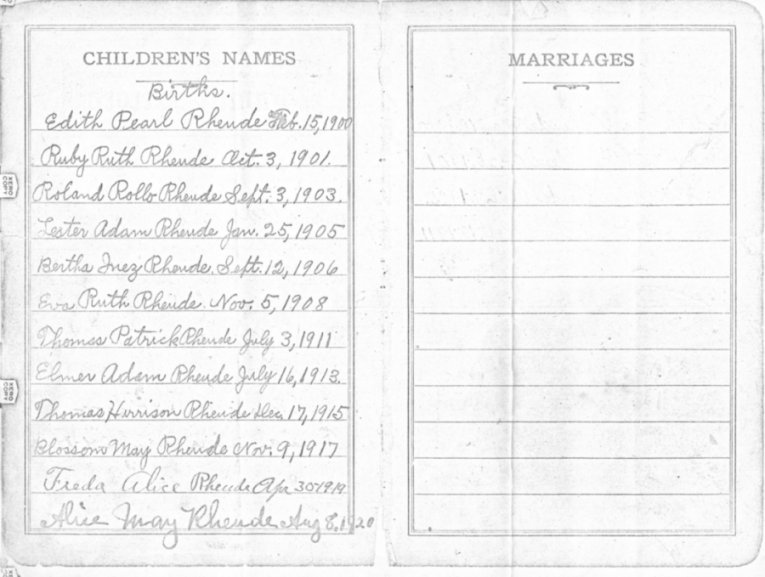 CHILDREN'S NAMES
Births.
Edith Pearl Rheude Feb. 15, 1900
Ruby Ruth Rheude Oct. 3, 1901.
Roland Rollo Rheude Sept. 3, 1903.
Lester Adam Rheude Jan. 25, 1905
Bertha Inez Rheude. Sept. 12, 1906
Eva Ruth Rheude. Nov. 5, 1908
Thomas Patrick Rheude July 3, 1911
Elmer Adam Rheude July 16, 1913.
Thomas Harrison Rheude Dec. 17, 1915
Blossom May Rheude Nov. 9, 1917
Freda Alice Rheude Apr 30 1919
Alice May Rheude Aug 8, 1920
MARRIAGES
XERO
COPY
XERO
COPY